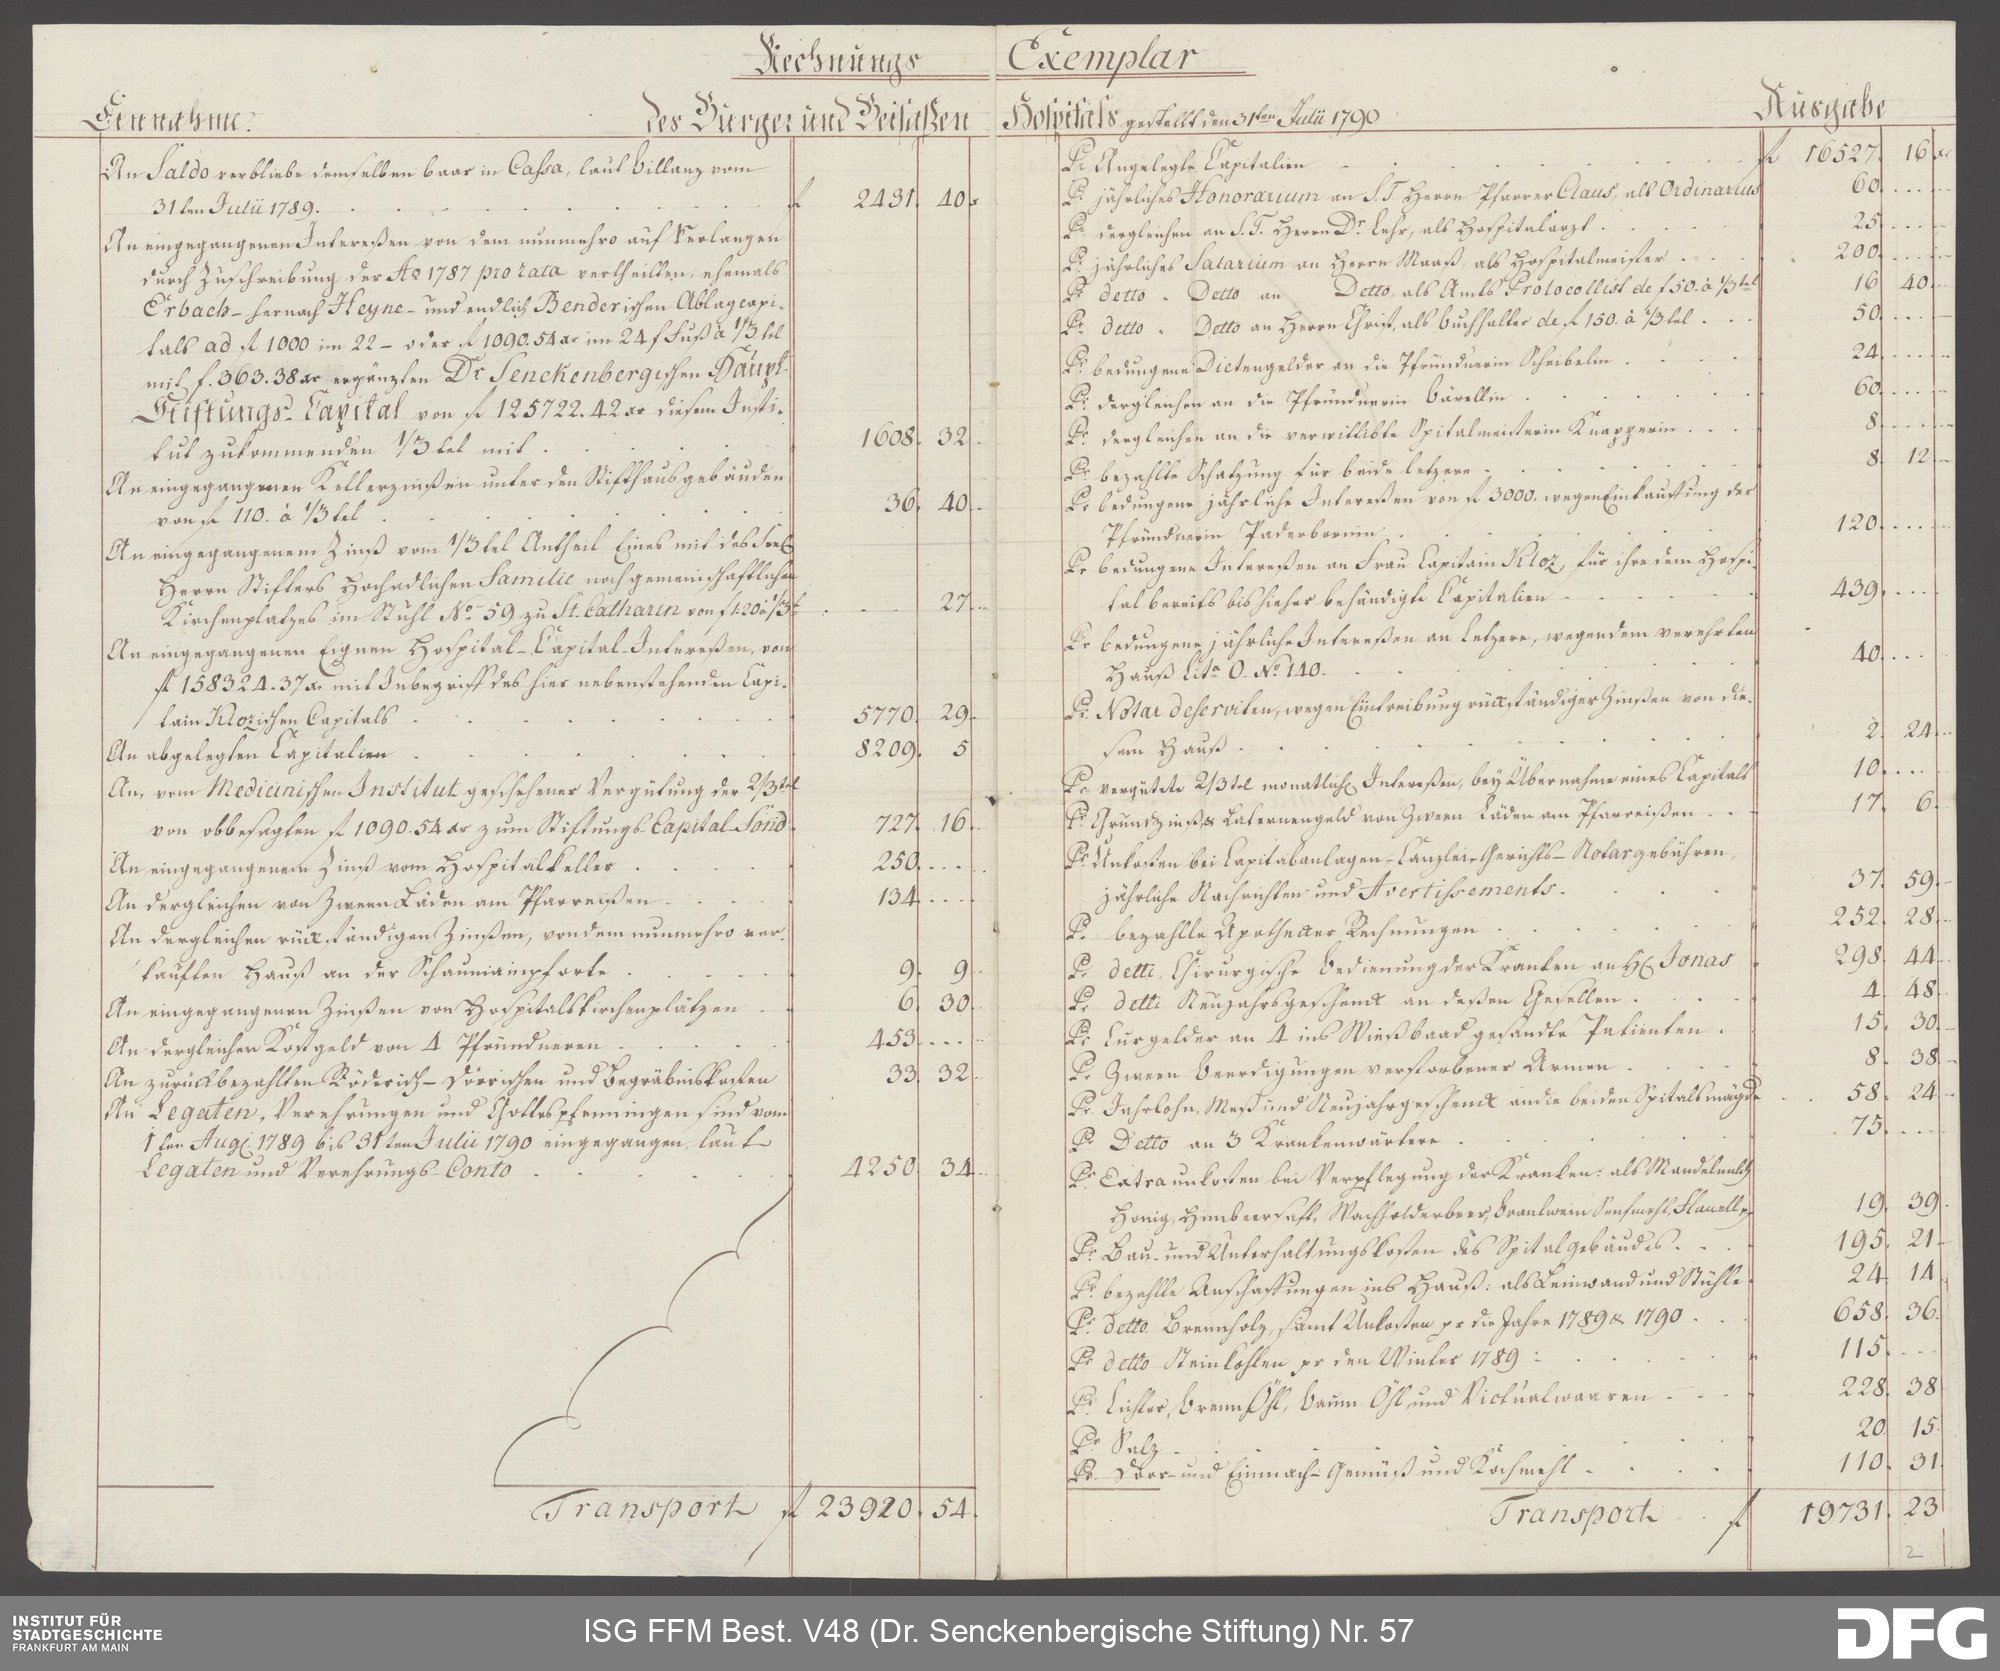 Rechnungs Exemplar
Einnahme.
des Burger und Beisaßen Hospitals gestellt den 31ten Julii 1790
Ausgabe
An Saldo verbliebe demselben baar in Cassa, laut billanz vom
31ten Julii 1789. f 2431. 40 x
An eingegangenen Intereßen von dem nunmehro auf Verlangen
durch Zuschreibung der Ao 1787 pro rata vertheilten, ehemals
Erbach- hernach Heyne- und endlich Benderischen Ablagcapi-
tals ad f 1000 im 22- oder f 1090.54 xr im 24 f Fuß à 1/3tel
mit f. 363.38 xr ergänzten Dr Senckenbergischen Haupt-
Stiftungs-Capital von f 125722.42 xr diesem Insti-
tut zukommenden 1/3tel mit 1608. 32
An eingegangenen Kellerzinßen unter den Stifthausgebäuden
von f 110. à 1/3tel 36. 40
An eingegangenem Zinß vom 1/3tel Antheil Eines mit des Seel.
Herrn Stifters Hochadlichen Familie noch gemeinschaftlichen
Kirchenplatzes im Stuhl No 59 zu St. Catharin von f 1.20 à 1/3t 27
An eingegangenen Eignen Hospital-Capital-Intereßen, von
f 158324.37 xr mit Inbegriff des hier nebenstehenden Capi-
tain Klozischen Capitals 5770. 29
An abgelegten Capitalien 8209. 5
An, vom Medicinischen Institut geschehener Vergütung der 2/3tel
von obbesagten f 1090.54 xr zum Stiftungs-Capital-Fond 727. 16
An eingegangenem Zinß vom Hospitalkeller 250.
An dergleichen von Zween Läden am Pfarreißen 134.
An dergleichen rückständigen Zinßen, von dem nunmehro ver-
kauften Hauß an der Schaumainpforte 9. 9
An eingegangenen Zinßen von Hospitalskirchenplätzen 6. 30
An dergleichen Kostgeld von 4 Pfründneren 453.
An zurückbezahlten Röderisch- Dörrischen und Begräbnißkosten 33. 32
An Legaten, Verehrungen und Gottespfenningen sind vom
1ten Augt. 1789 bis 31ten Julii 1790 eingegangen, laut
Legaten und Verehrungs-Conto 4250. 34
Transport f 23920. 54.
Pr Angelegte Capitalien f 16527. 16 xr
Pr jährliches Honorarium an S.T. Herrn Pfarrer Claus, als Ordinarius 60.
Pr dergleichen an S.T. Herrn Dr Lehr, als Hospitalarzt 25
Pr jährliches Salarium an Herrn Maaß, als Hospitalmeister 200.
Pr detto - Detto an Detto, als Amts Protocollist de f 50. à 1/3tel 16 40
Pr detto - Detto an Herrn Christ, als buchhalter de f 150. à 1/3tel 50.
Pr bedungene Dietengelder an die Pfründnerin Scheibelin 24
Pr dergleichen an die Pfründnerin Bärellin 60.
Pr dergleichen an die verwittibte Spitalmeisterin Knapperin 8.
Pr bezahlte Schatzung für beide letzere 8. 12
Pr bedungene jährliche Intereßen von f 3000. wegen Einkauffung der
Pfründnerin Paderbornin 120.
Pr bedungene Intereßen an Frau Capitain Kloz, für ihre dem Hospi-
tal bereits bishieher behändigte Capitalien 439.
Pr bedungene jährliche Intereßen an Letzere, wegen dem verehrten
Hauß Lit: O. No 140. 40.
Pr Notar deserviten, wegen Eintreibung rückständiger Zinßen von die-
sem Hauß 2. 24
Pr vergütete 2/3tel monatliche Intereßen, bey Übernahme eines Capitals 10.
Pr Grundzinß & Laternengeld von Zween Läden am Pfarreißen 17. 6
Pr Unkosten bei Capitalanlagen, Canzlei-Gerichts- Notargebühren,
jährliche Nachrichten und Avertissements 37. 59
Pr bezahlte Apothecker Rechnungen 252. 28
Pr detti Chirurgische Bedienung der Kranken an H. Jonas 298. 44
Pr detti Neujahrsgeschenck an deßen Gesellen 4. 48
Pr Curgelder an 4 ins Wießbaad gesandte Patienten 15. 30
Pr Zween Beerdigungen verstorbener Armen 8. 38
Pr Jahrlohn, Meß und Neujahrgeschenck an die beiden Spitalsmägde 58. 24
Pr Detto an 3 Krankenwärtere 75.
Pr Extra unkosten bei Verpflegung der Kranken: als Mandelmilch
Honig, Himbeersaft, Wachholderbeer, Brantwein Senfmehl, Flanell p 19. 39
Pr Bau- und Unterhaltungskosten des Spitalgebäudes 195. 21
Pr bezahlte Anschaffungen ins Hauß: als Leinwand und Stühle 24 14
Pr detto Brennholz, samt Unkosten pr die Jahre 1789 & 1790 658. 36.
Pr detto Steinkohlen pr den Winter 1789 115.
Pr Lichter, brenn Öhl, baum Öhl und Victualwaaren 228. 38
Pr Salz 20. 15
Pr Dörr- und Einmach-Gemüß und Kochmehl 110. 31
Transport f 19731. 23
2
INSTITUT FÜR
STADTGESCHICHTE
FRANKFURT AM MAIN
ISG FFM Best. V48 (Dr. Senckenbergische Stiftung) Nr. 57
DFG